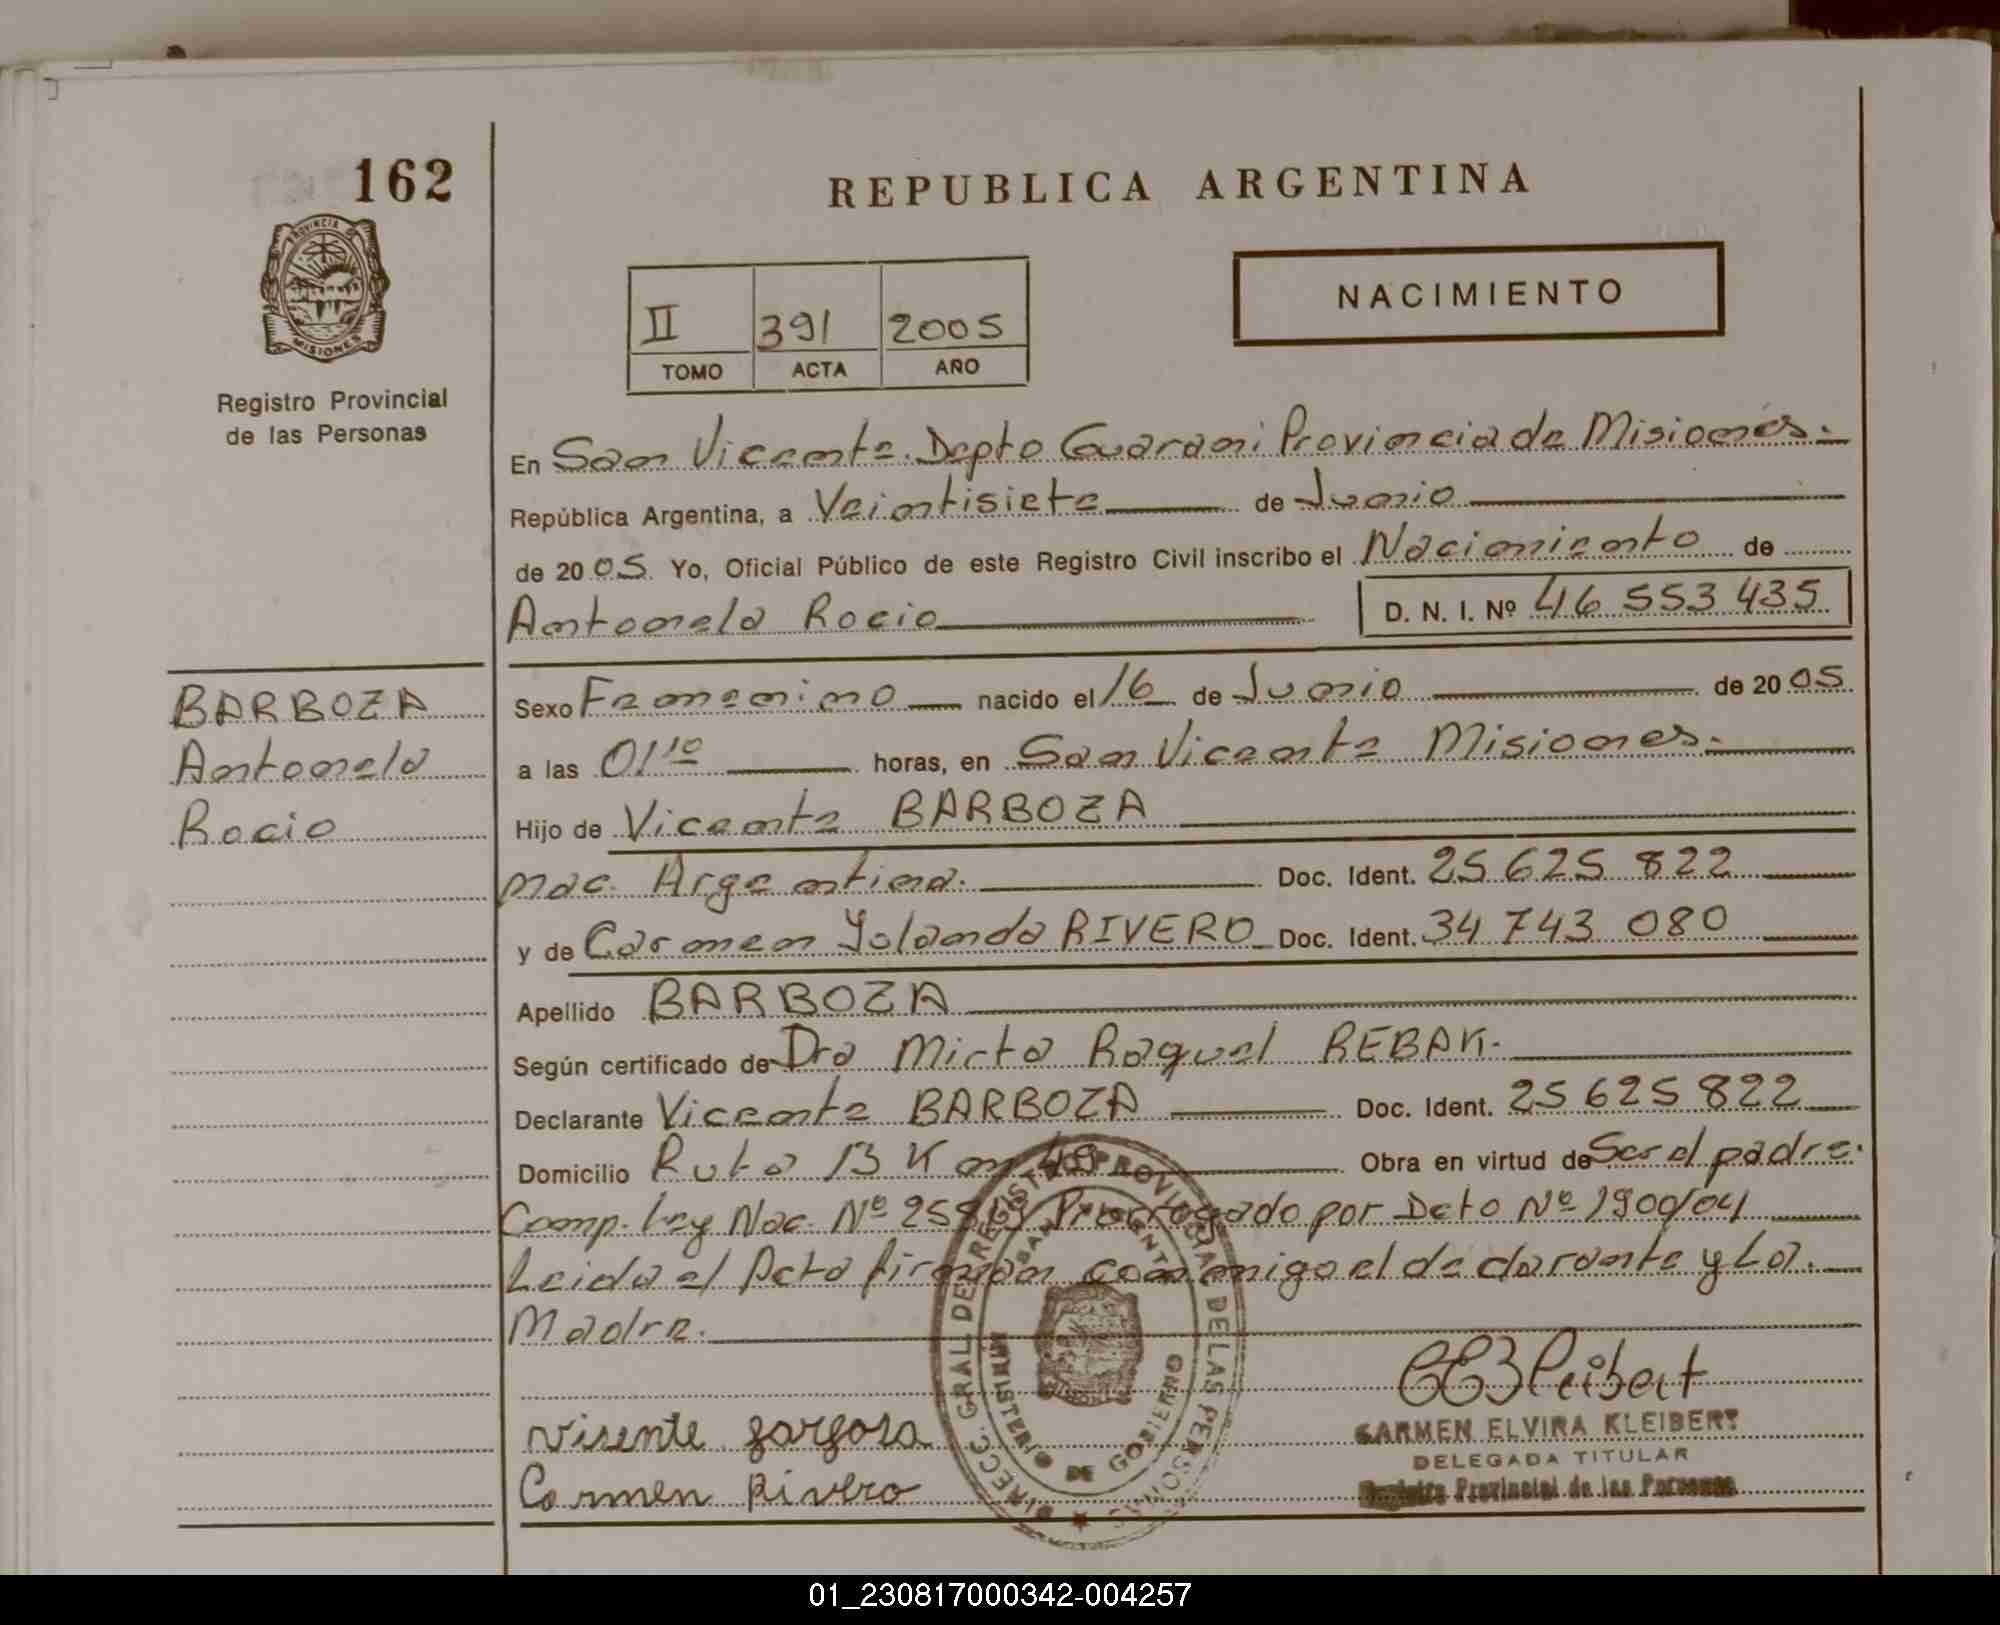 162
REPUBLICA ARGENTINA
PROVINCIA DE
MISIONES
Registro Provincial
de las Personas
NACIMIENTO
II 391 2005
TOMO ACTA AÑO
En San Vicente. Depto Guarani Provincia de Misiones.
República Argentina, a Veintisiete de Junio
de 2005 Yo, Oficial Público de este Registro Civil inscribo el Nacimiento de
Antonela Rocio
D. N. I. Nº 46 553 435
BARBOZA
Antonela
Rocio
Sexo Femenino nacido el 16 de Junio de 2005
a las 01¹⁰ horas, en San Vicente Misiones.
Hijo de Vicente BARBOZA
nac. Argentina. Doc. Ident. 25 625 822
y de Carmen Yolanda RIVERO Doc. Ident. 34 743 080
Apellido BARBOZA
Según certificado de Dra Mirta Raquel REBAK.
Declarante Vicente BARBOZA Doc. Ident. 25 625 822
Domicilio Ruta 13 Km Obra en virtud de Ser el padre.
Comp. Ley Nac. Nº Prorrogado por Dcto Nº 1900/04
Leida el Acta firman conmigo el declarante y La.
Madre.
DIRECC. GRAL. DEL REGISTRO PROVINCIAL DE LAS PERSONAS
MINISTERIO DE GOBIERNO
CARMEN ELVIRA KLEIBERT
DELEGADA TITULAR
Registro Provincial de las Personas
Carmen Rivero
01_230817000342-004257